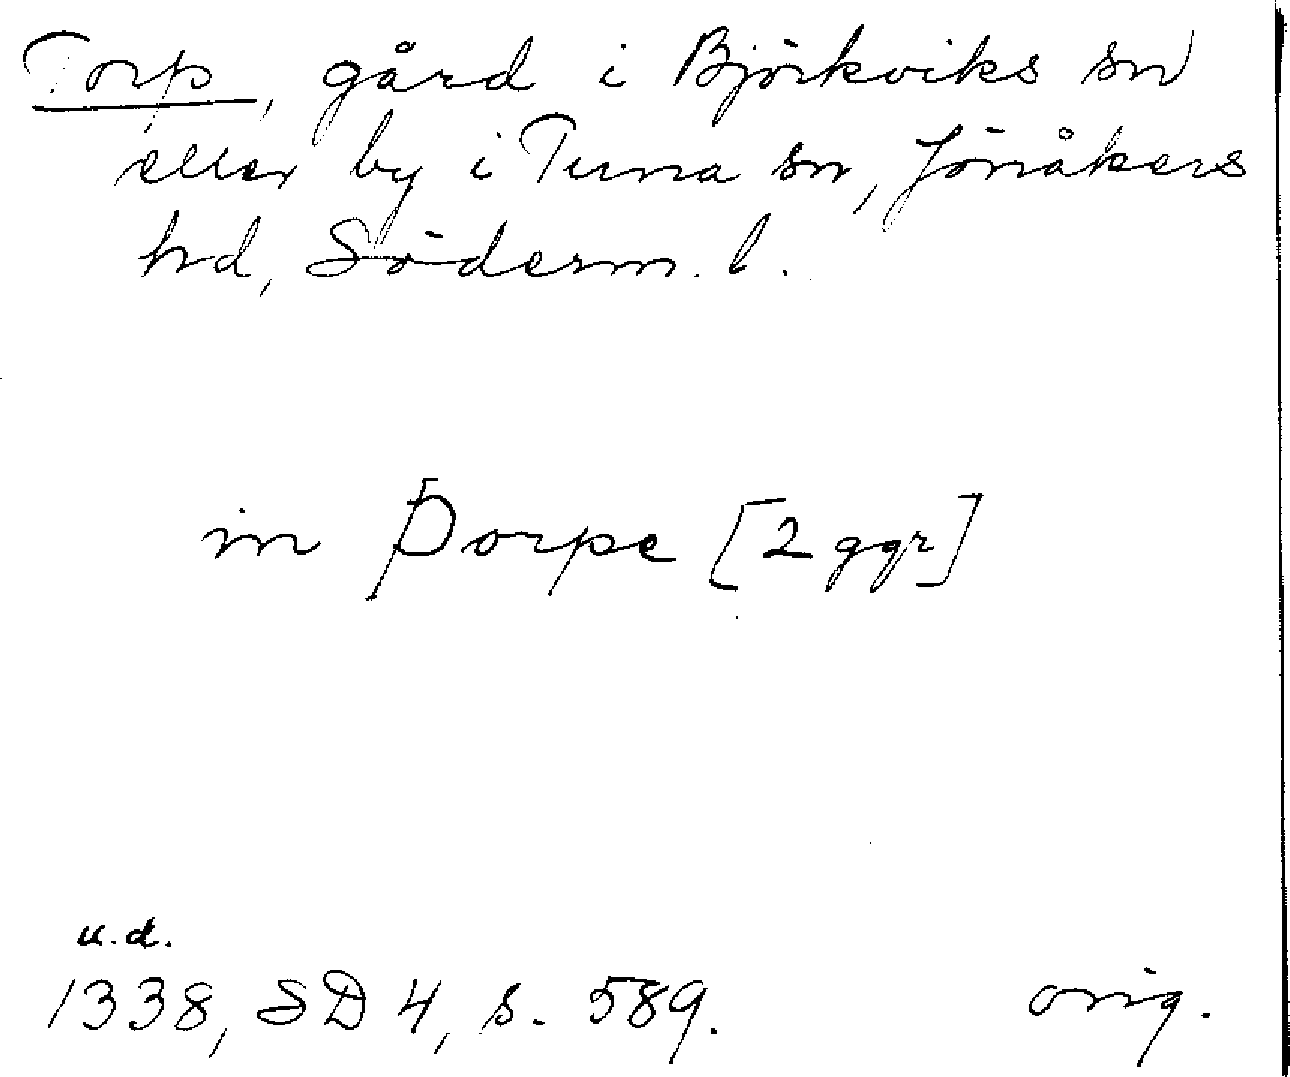 Torp, gård i Björkviks sn
eller by i Tuna sn, Jönåkers
hd, Söderm. l.
in Þorpe [2 ggr]
u.d.
1338, SD 4, s. 589. orig.